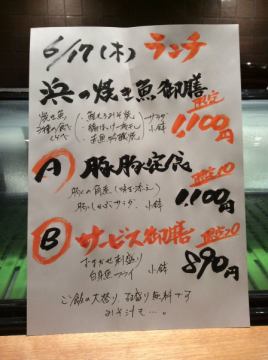 6/17(木) ランチ
浜の焼き魚御膳
焼き魚 ・鮭 みそ焼 サラダ
3種 食べ ・ 一夜干し 小鉢
くらべ ・赤魚 焼
限定 1,100円
A 豚豚定食 限定10
豚の角煮(味玉添え)
豚しゃぶサラダ 小鉢 1,100円
B サービス御膳 限定20
おまかせ刺盛り
白身魚フライ 小鉢 890円
ご飯の大盛り 無料です